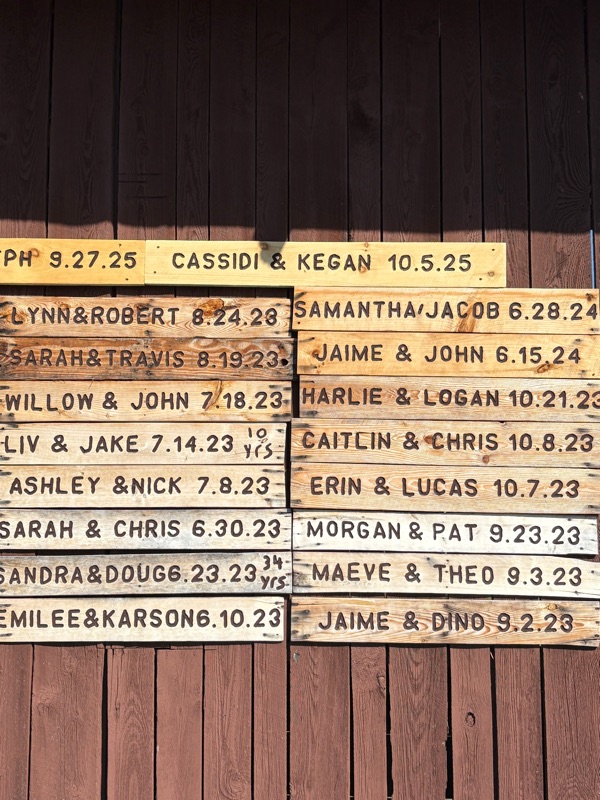 PH 9.27.25
CASSIDI & KEGAN 10.5.25
LYNN&ROBERT 8.24.23
SARAH&TRAVIS 8.19.23
WILLOW & JOHN 7.18.23
LIV & JAKE 7.14.23 10 yrs
ASHLEY &NICK 7.8.23
SARAH & CHRIS 6.30.23
SANDRA&DOUG6.23.23 34 yrs
EMILEE&KARSON6.10.23
SAMANTHA/JACOB 6.28.24
JAIME & JOHN 6.15.24
HARLIE & LOGAN 10.21.23
CAITLIN & CHRIS 10.8.23
ERIN & LUCAS 10.7.23
MORGAN & PAT 9.23.23
MAEVE & THEO 9.3.23
JAIME & DINO 9.2.23